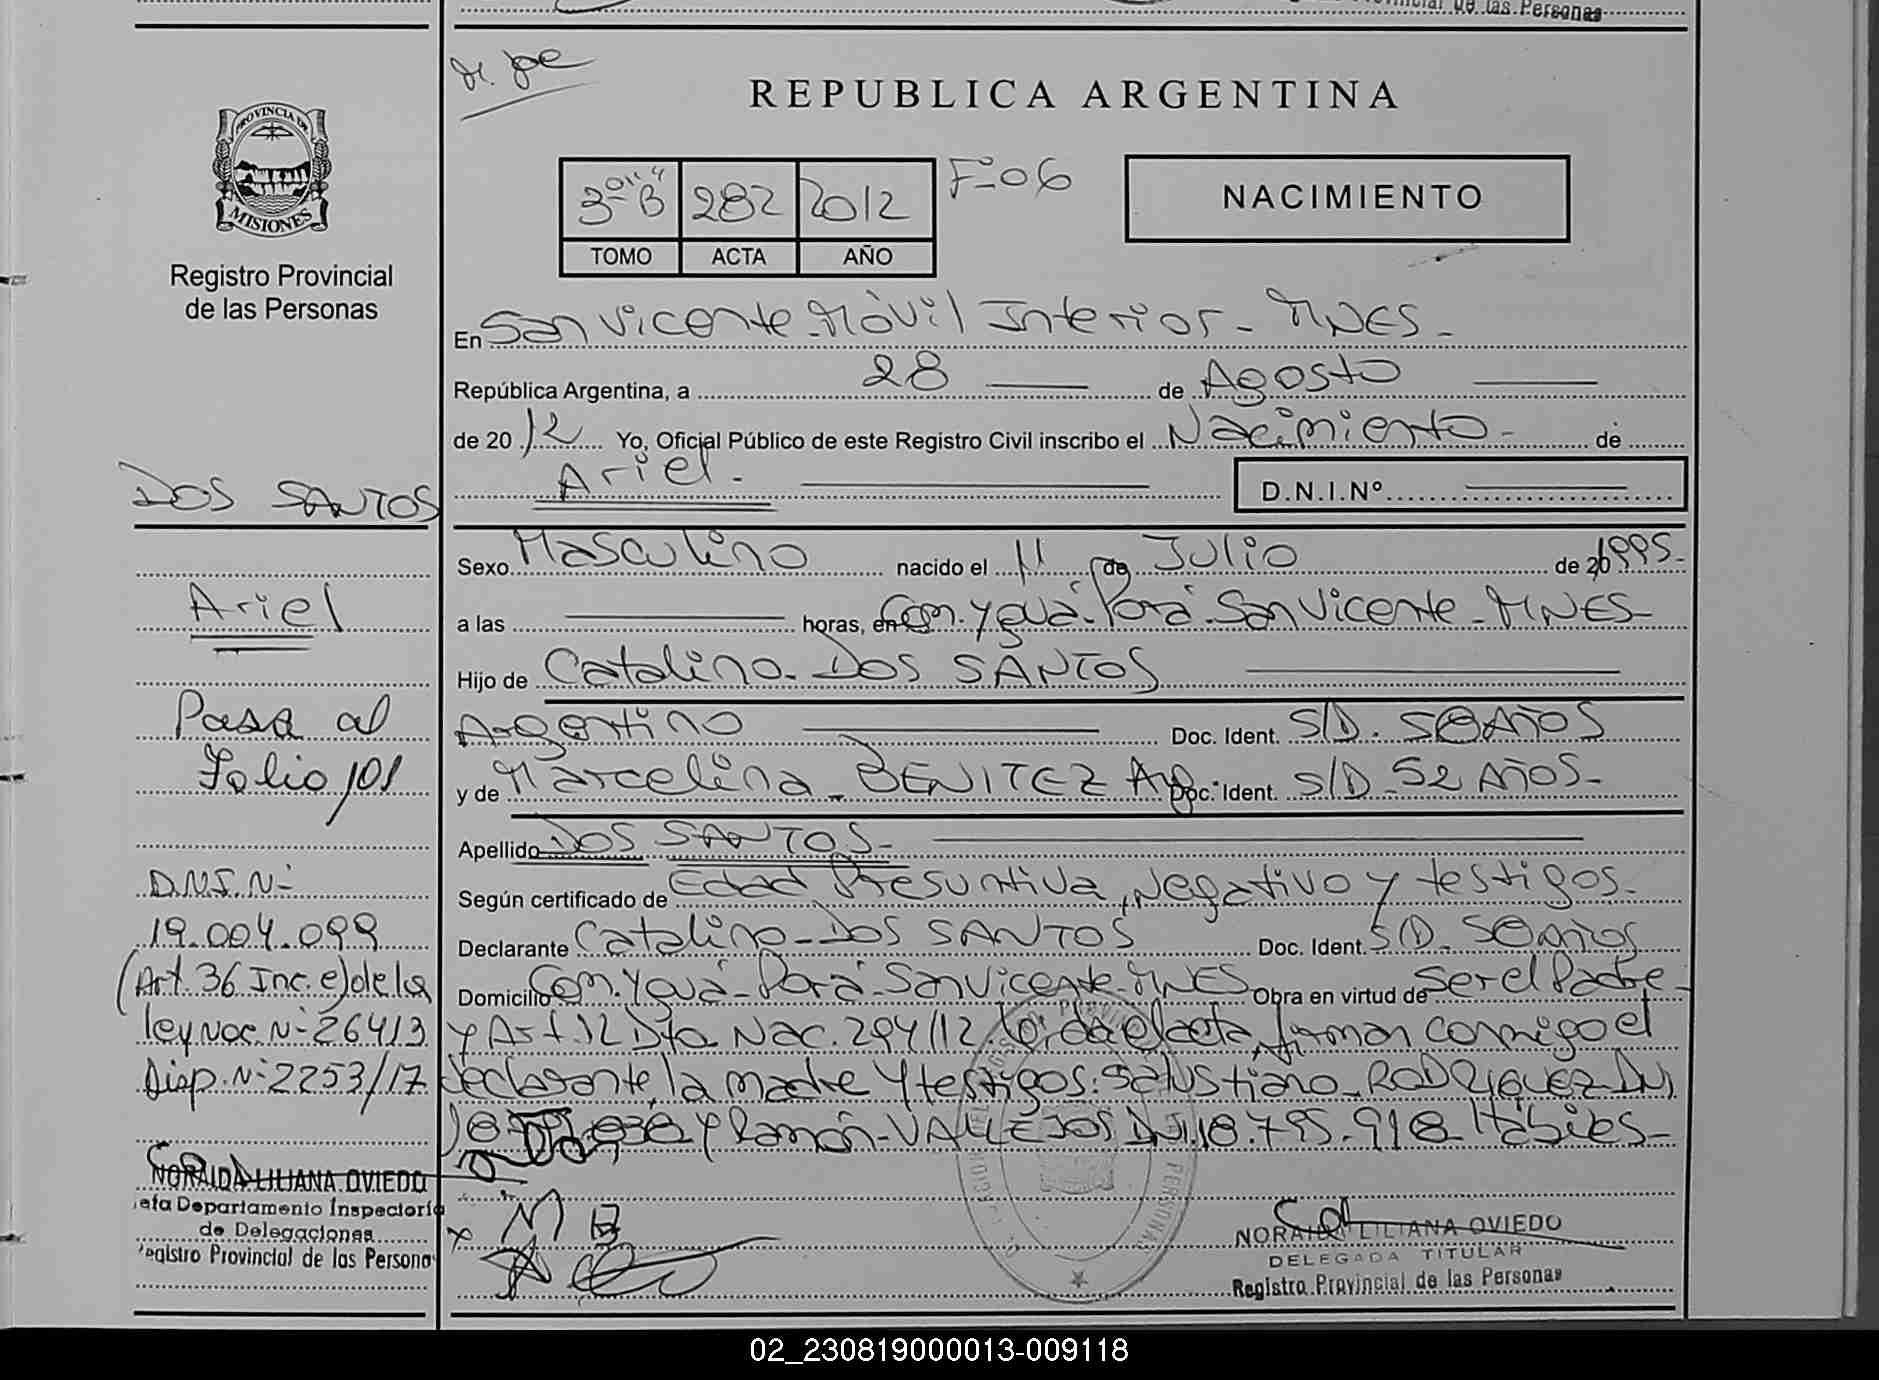 de las Personas
REPUBLICA ARGENTINA
PROVINCIA DE
MISIONES
Registro Provincial
de las Personas
3º "B" 282 2012 Fº 06
TOMO ACTA AÑO
NACIMIENTO
En San Vicente Móvil Interior - MNES -
República Argentina, a 28 de Agosto
de 2012 Yo, Oficial Público de este Registro Civil inscribo el Nacimiento - de
Ariel. D.N.I.Nº
DOS SANTOS
Ariel
Pasa al
Folio 101
D.N.I. Nº
19.004.099
(Art. 36 Inc. e) de la
ley Nac. Nº 26413
Disp. Nº 2253/17
NORAIDA LILIANA OVIEDO
Jefa Departamento Inspectoría
de Delegaciones
Registro Provincial de las Personas
Sexo Masculino nacido el 11 de Julio de 20 1995-
a las horas, en Com. Yguá - Porá - San Vicente - MNES -
Hijo de Catalino - DOS SANTOS
Argentino Doc. Ident. S/D. 58 AÑOS
y de Marcelina - BENITEZ Arg. Doc. Ident. S/D - 52 AÑOS -
Apellido DOS SANTOS -
Según certificado de Edad Presuntiva, Negativo y testigos -
Declarante Catalino - DOS SANTOS Doc. Ident. S/D - 58 años
Domicilio Com. Yguá - Porá - San Vicente - MNES Obra en virtud de ser el Padre -
y Art. 12 Dto Nac. 294/12 leída el acta, firman conmigo el
declarante, la madre y testigos: Salustiano - RODRIGUEZ DNI
y Ramón - VALLEJOS DNI 18.795.918 Hábiles -
M B
NORAIDA LILIANA OVIEDO
DELEGADA TITULAR
Registro Provincial de las Personas
02_230819000013-009118